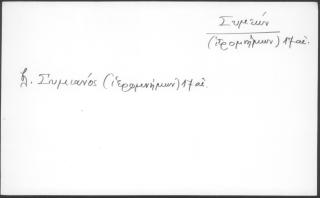 Συμεών
(ἱερομνήμων) 17 αἰ.
Βλ. Συμεωνός (ἱερομνήμων) 17 αἰ.